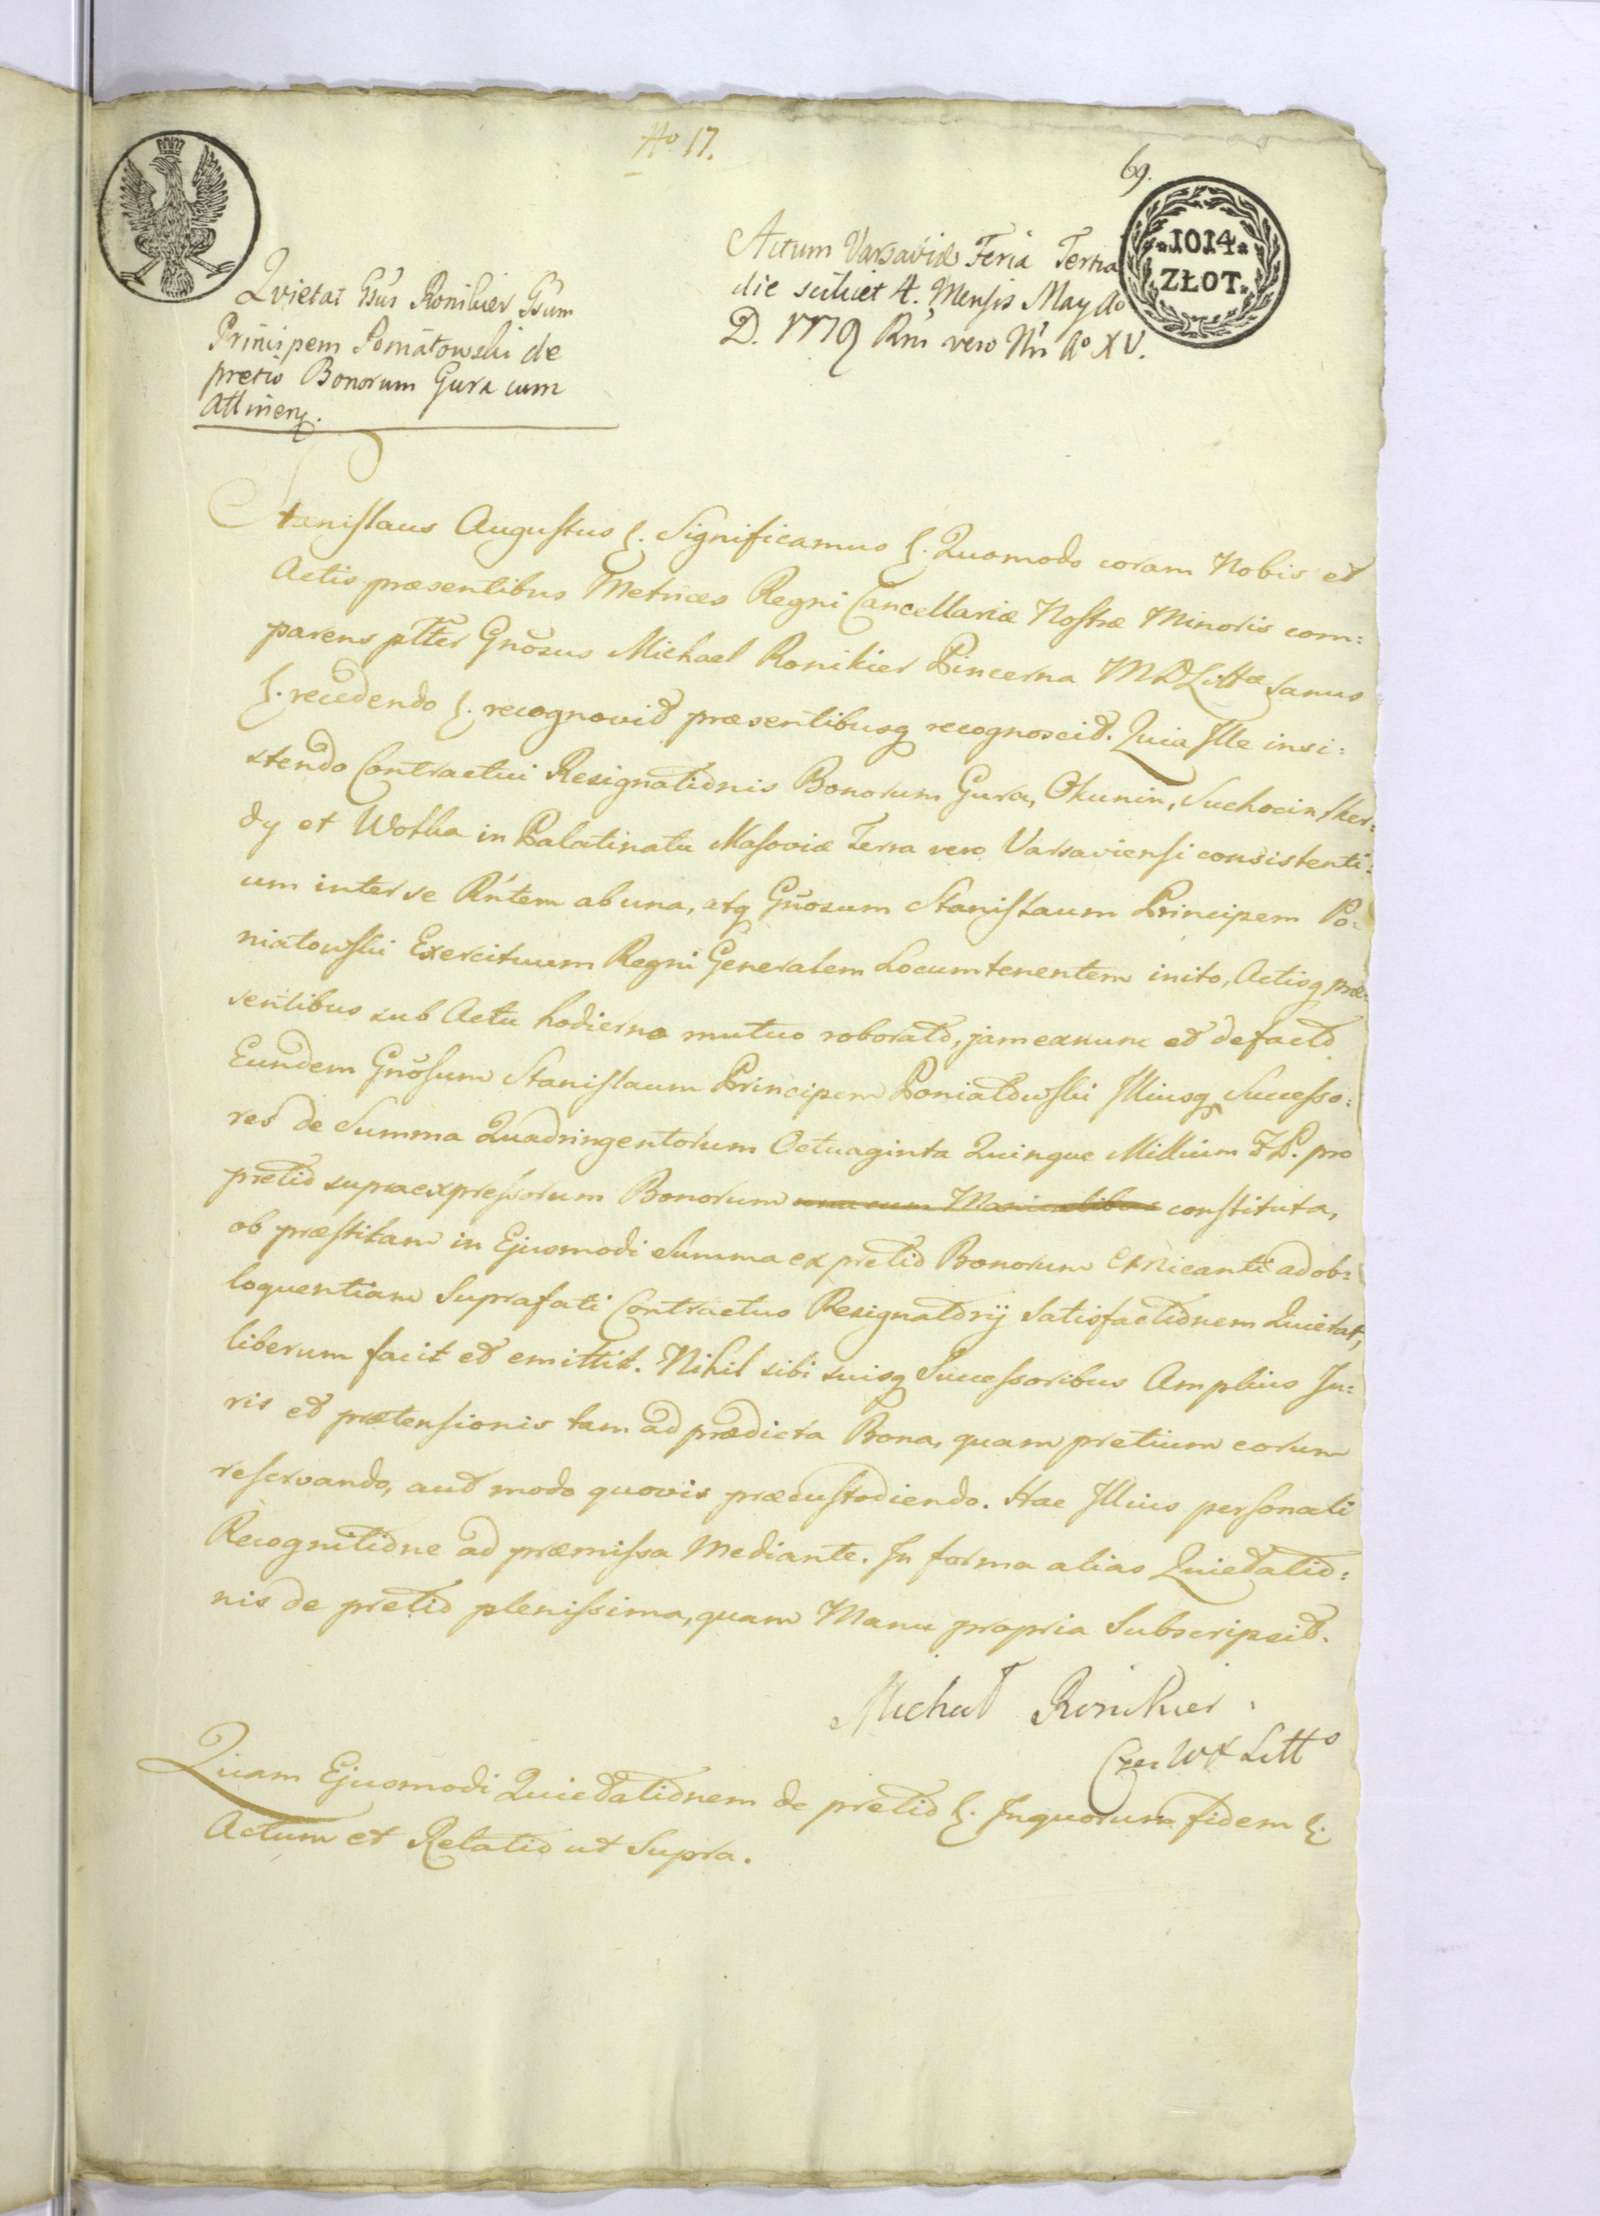 No 17.
69.
1014
ZŁOT.
Actum Varsaviæ Feria Tertia
die scilicet 4. Mensis May Ao
D. 1779 Rni vero Nri Ao XV.
Qvietat Gsus Ronikier Gsum
Principem Poniatowski de
pretio Bonorum Gura cum
Attinen.
Stanislaus Augustus Significamus Quomodo coram Nobis et
Actis præsentibus Metrices Regni Cancellariæ Nostræ Minoris com:
parens plter Gnosus Michael Ronikier Pincerna M D Littæ sanus
recedendo recognovit præsentibusq recognoscit. Quia Ille insi:
stendo Contractui Resignationis Bonorum Gura, Okunin, Suchocin Sker:
dy et Wolka in Palatinatu Masoviæ Terra vero Varsaviensi consistenti:
um inter se Rntem ab una, atq Gnosum Stanislaum Principem Po:
niatowski Exercituum Regni Generalem Locumtenentem inito, Actisq præ:
sentibus sub Actu hodierno mutuo roborato, jam ex nunc et de facto
Eundem Gnosum Stanislaum Principem Poniatowski Illiusq Successo:
res de Summa Quadringentorum Octuaginta Quinque Millium F P. pro
pretio supraexpressorum Bonorum una cum constituta,
ob præstitam in Ejusmodi Summa ex pretio Bonorum adob:
loquentiam Suprafati Contractus Resignatorij Satisfactionem Quietat,
liberum facit et emittit. Nihil sibi suisq Successoribus Amplius Ju:
ris et prætensionis tam ad prædicta Bona, quam pretium eorum
reservando, aut modo quovis præcustodiendo. Hac Illius personali
Recognitione ad præmissa Mediante. In forma alias Quietatio:
nis de pretio plenissima, quam Manu propria Subscripsit.
Michał Ronikier
Cze. W X Litt
Quam Ejusmodi Quietationem de pretio In quorum fidem
Actum et Relatio ut Supra.